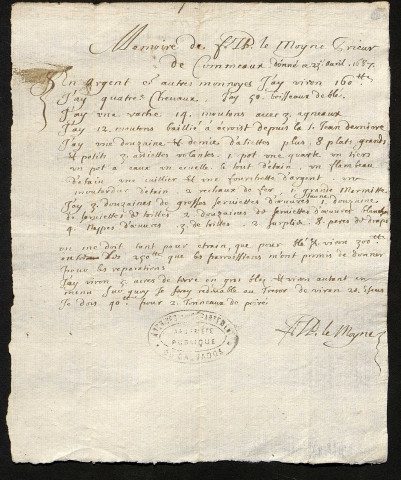 Memoire de f. Tb. le Moyne Prieur
de Commeaux donné ce 23 Avril. 1687.
En Argent et autres monnoyes J'ay viron 160 tt
J'ay quatres Chevaux. J'ay 50. boisseaux de blé.
J'ay une vache 14. moutons avec 3. agneaux
J'ay 12. moutons baillié a croist depuis la S. Jean derniere
J'ay une douzaine et demie d'assiettes plus, 8 plats grands
et petits 3 assiettes volantes. 1 pot une quarte un tiers
un pot a eaux un ecuelle. le tout d'etain. un flambeau
d'etain une cuillier et une fourchette d'argent. un
moutardier d'etain 2 rechaux de fer, 1 grande Marmitte
J'ay 3. douzaines de grosses serviettes d'œuvres 1. douzaine
de serviettes de toilles 2 douzaines de serviettes d'œuvres blanches
4 Nappes d'œuvres 3 de toilles. 2 surplis. 8 peres de draps
on me doit tant pour etrain, que pour blé et viron 30 tt
250 tt que les paroissiens m'ont promis de donner
pour les reparations
J'ay viron 5 acres de terre en gros blés et viron autant en
menu sur quoy je seray redevable au Tresor de viron 20. escus
Je dois 40 tt pour 2 Tonneaux de poiré
f. Tb. le Moyne
ARCHIVES DEPARTEMENTALES
PROPRIÉTÉ
PUBLIQUE
CALVADOS